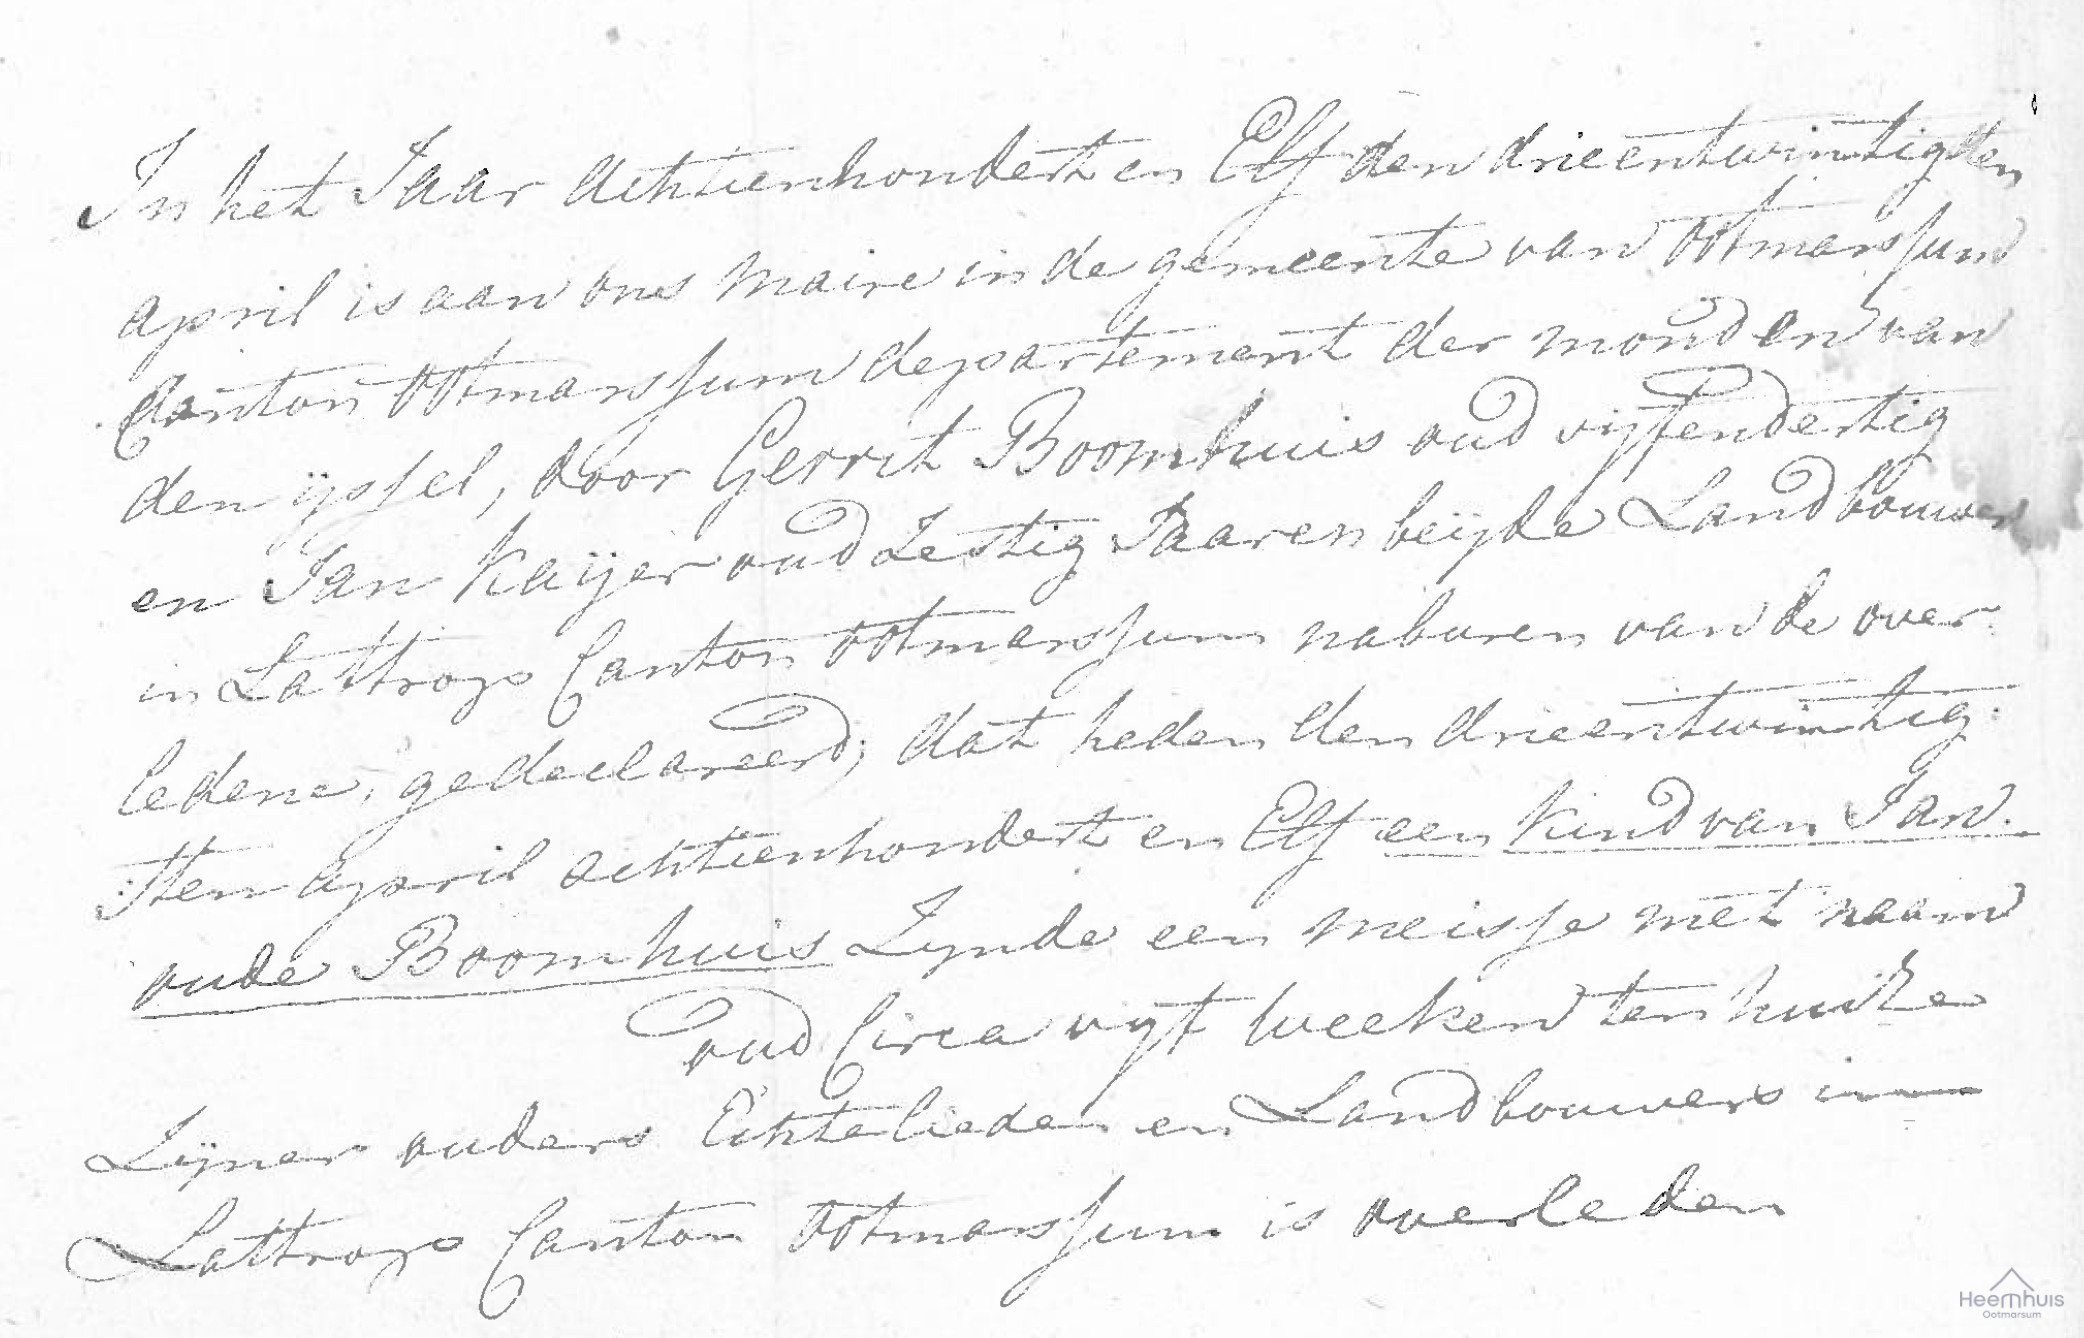 In het Jaar Achtienhondert en Elf den drieentwintigsten
april is aan ons maire in de gemeente van Ootmarssum
Canton Ootmarssum departement der monden van
den ijssel, door Gerrit Boomhuis oud vijfendertig
en Jan Kaijer oud Zestig Jaaren beijde Landbouwer
in Lattrop Canton Ootmarssum naburen van de over-
ledene, gedeclareerd; dat heden den drieentwintig-
sten April achtienhondert en Elf een kind van Jan
oude Boomhuis Zynde een meisje met naam
oud Circa vijf weeken ten huize
Zijner ouders Echtelieden en Landbouwers in
Lattrop Canton Ootmarssum is overleden
Heemhuis
Ootmarsum